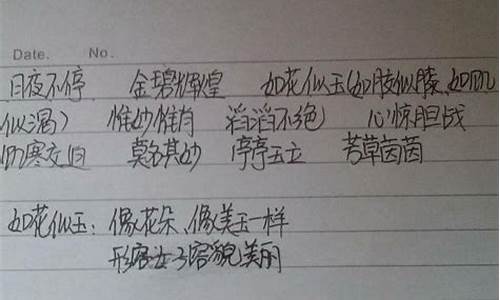 Date. No.
日夜不停 金碧辉煌 如花似玉(如胶似膝、如饥
似渴) 惟妙惟肖 滔滔不绝 心惊胆战
饥寒交迫 莫名其妙 亭亭玉立 芳草茵茵
如花似玉：像花朵、像美玉一样
形容女子容貌美丽